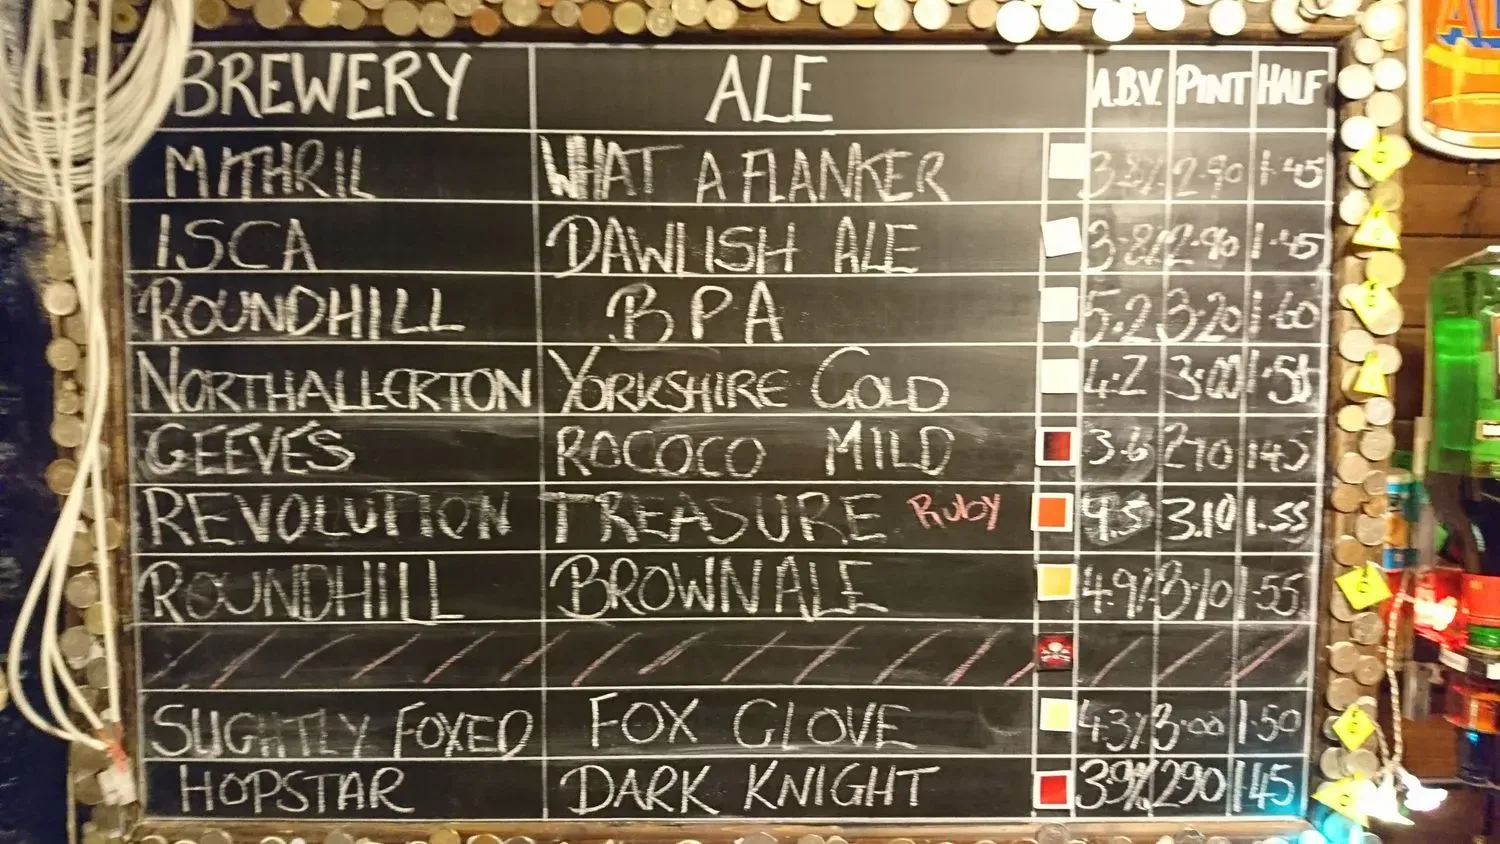 BREWERY ALE A.B.V. PINT HALF
MITHRIL WHAT A FLANKER 3.8% 2.90 1.45
ISCA DAWLISH ALE 3.8% 2.90 1.45
ROUNDHILL BPA 5.2 3.20 1.60
NORTHALLERTON YORKSHIRE GOLD 4.2 3.00 1.50
GEEVES ROCOCO MILD 3.6 270 145
REVOLUTION TREASURE Ruby 4.5 3.10 1.55
ROUNDHILL BROWN ALE 4.9% 3.10 1.55
SLIGHTLY FOXED FOX GLOVE 43% 3.00 1.50
HOPSTAR DARK KNIGHT 3.9% 290 1.45